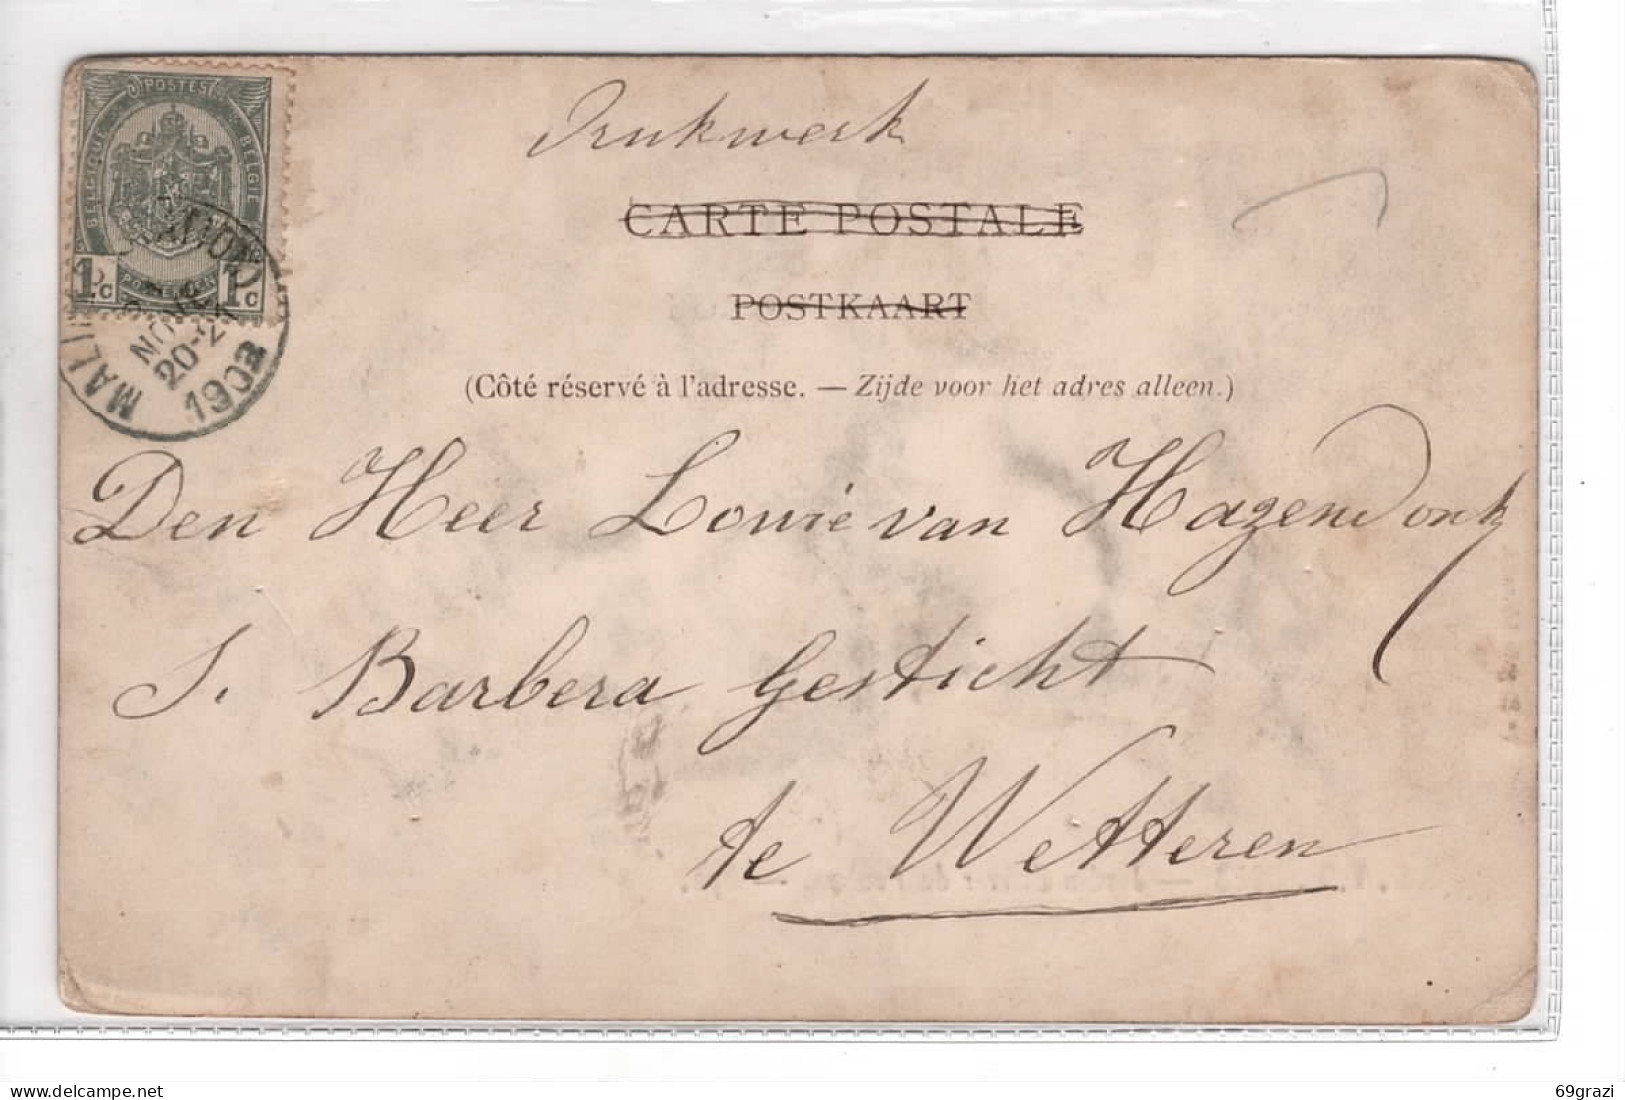 Drukwerk
CARTE POSTALE
POSTKAART
(Côté réservé à l'adresse. — Zijde voor het adres alleen.)
POSTES
BELGIQUE BELGIE
1c 1c
MALINES (STATION)
JUIN
20-21
1902
Den Heer Lowie van Hazendonk
S. Barbera Gesticht
te Wetteren
69grazi
delcampe.net